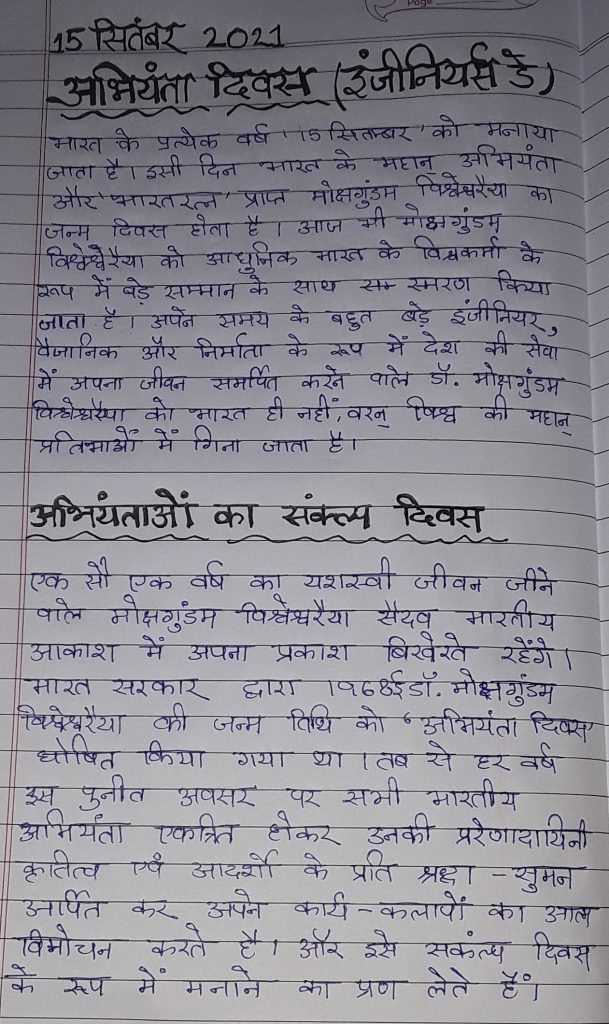 Page
15 सितंबर 2021
अभियंता दिवस (इंजीनियर्स डे)
भारत के प्रत्येक वर्ष '15 सितम्बर' को मनाया
जाता है। इसी दिन भारत के महान अभियंता
और 'भारतरत्न' प्राप्त मोक्षगुंडम विश्वेश्वरैया का
जन्म दिवस होता है। आज भी मोक्षगुंडम
विश्वेश्वरैया को आधुनिक भारत के विश्वकर्मा के
रूप में बड़े सम्मान के साथ स्मरण किया
जाता है। अपने समय के बहुत बड़े इंजीनियर,
वैज्ञानिक और निर्माता के रूप में देश की सेवा
में अपना जीवन समर्पित करने वाले डॉ. मोक्षगुंडम
विश्वेश्वरैया को भारत ही नहीं, वरन् विश्व की महान्
प्रतिभाओं में गिना जाता है।
अभियंताओं का संकल्प दिवस
एक सौ एक वर्ष का यशस्वी जीवन जीने
वाले मोक्षगुंडम विश्वेश्वरैया सदैव भारतीय
आकाश में अपना प्रकाश बिखेरते रहेंगे।
भारत सरकार द्वारा 1968ई डॉ. मोक्षगुंडम
विश्वेश्वरैया की जन्म तिथि को 'अभियंता दिवस'
घोषित किया गया था। तब से हर वर्ष
इस पुनीत अवसर पर सभी भारतीय
अभियंता एकत्रित होकर उनकी प्ररेणादायिनी
कृतित्व एवं आदर्शो के प्रति श्रद्धा - सुमन
अर्पित कर अपने कार्य - कलापों का आत्म
विमोचन करते है। और इसे सकंल्प दिवस
के रूप में मनाने का प्रण लेते हैं।